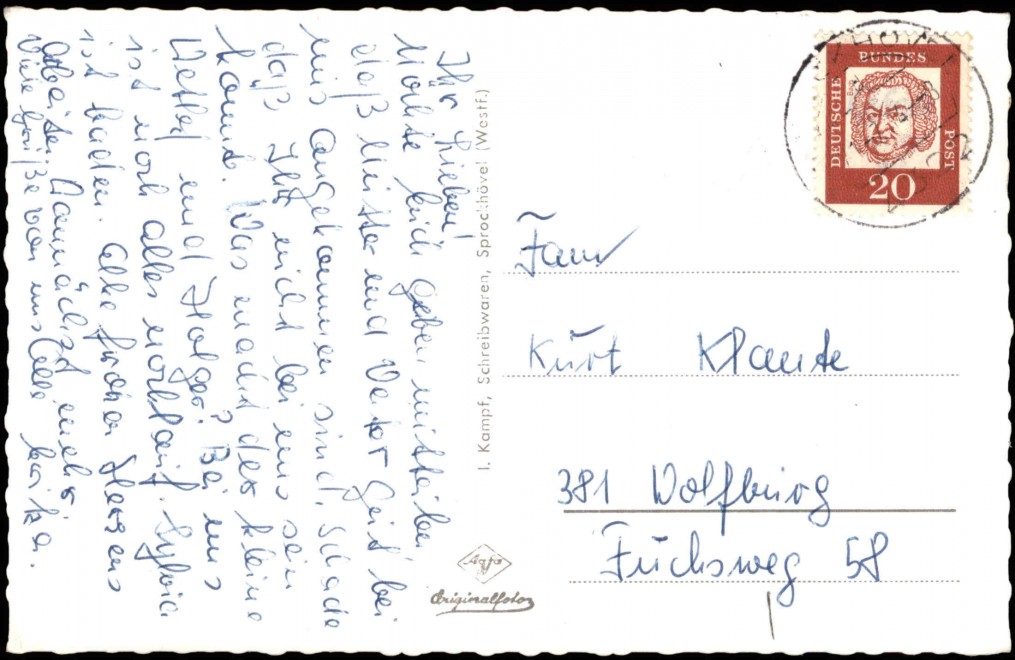 Ihr Lieben!
Möchte Euch geben mitteilen
daß Mutter und Vater Gut bei
uns angekommen sind. Schade
daß Ihr nicht bei uns sein
konnt. Was macht der kleine
und Holger? Bei uns
ist noch alles wohlauf. Sylvia
ist baden. Alle
Arbeiten. Demnächst mehr.
Viele Grüße von uns Alle
I. Kampf, Schreibwaren, Sprockhövel (Westf.)
Agfa
Originalfoto
DEUTSCHE BUNDES POST
20
Fam
Kurt Klaute
381 Wolfburg
Fuchsweg 58